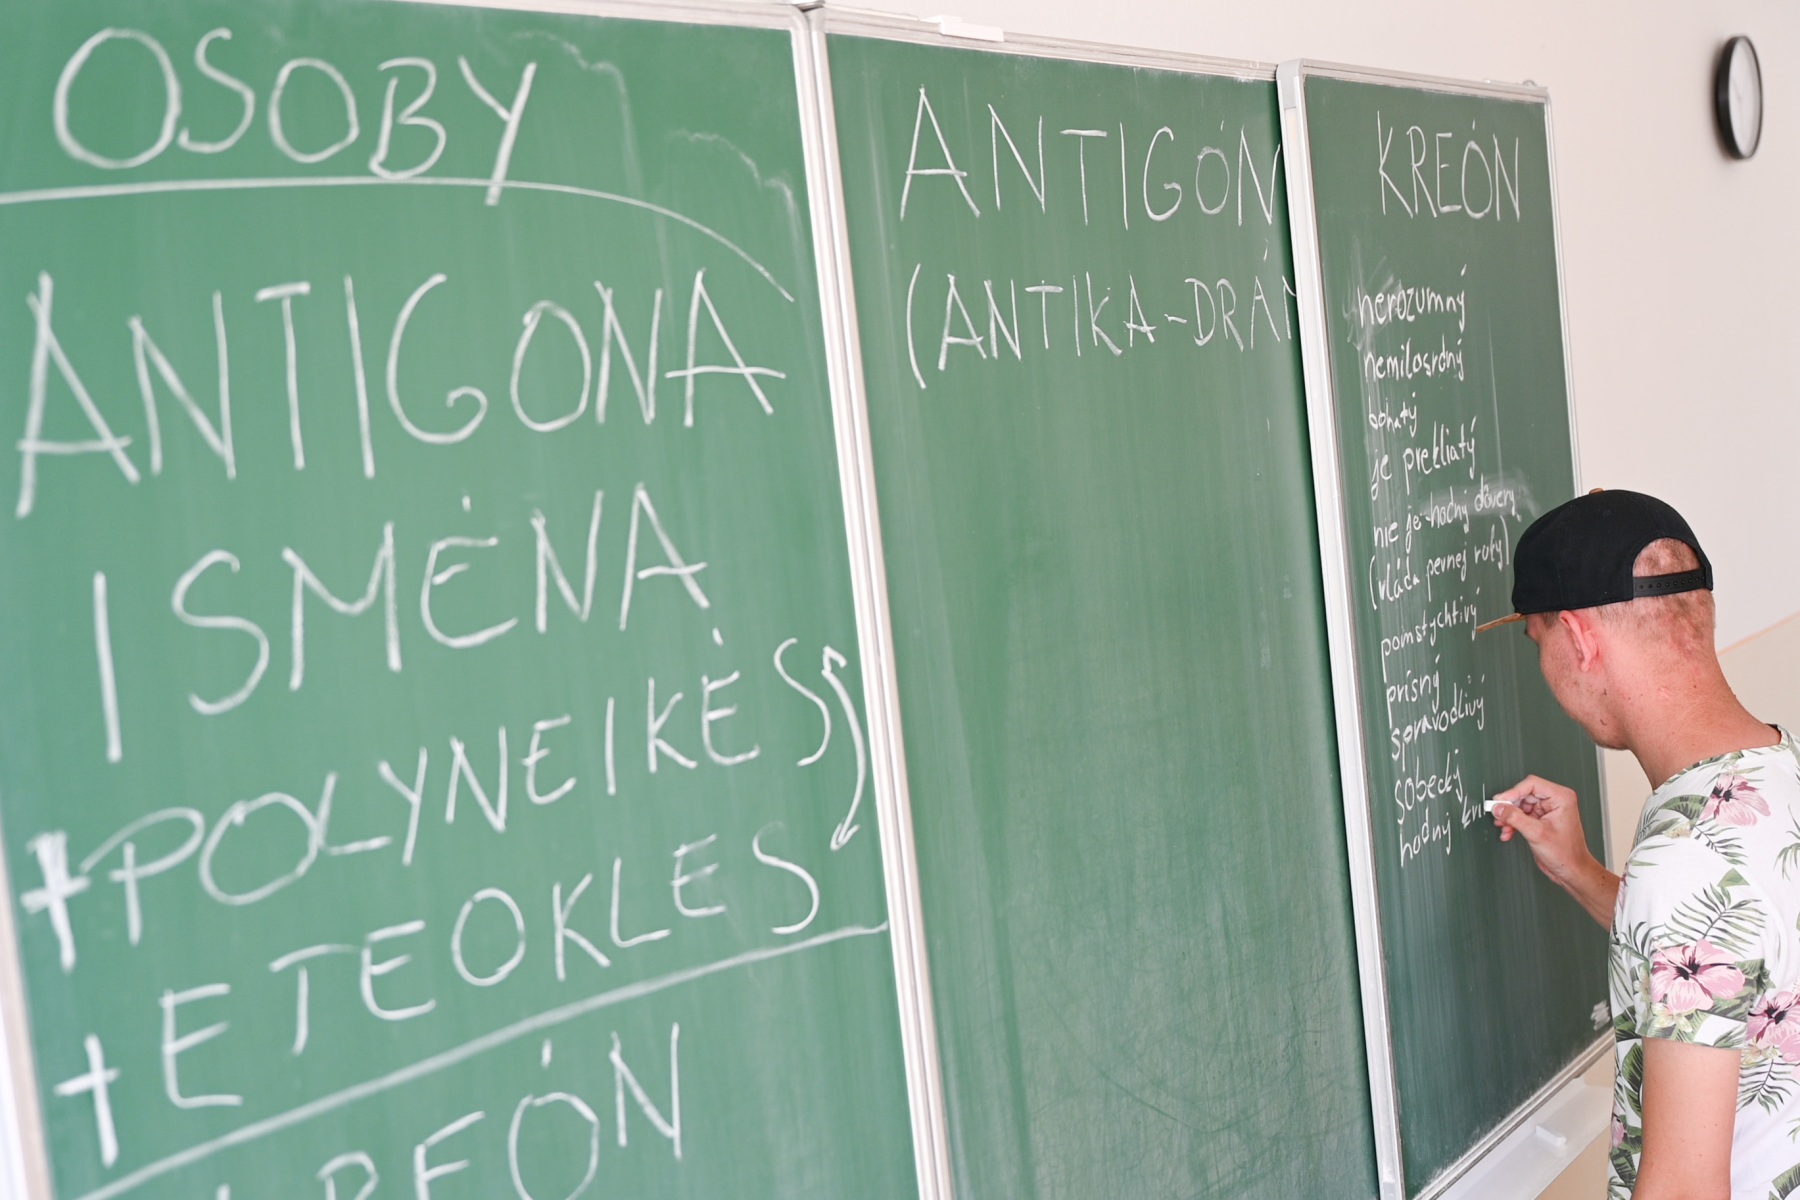 OSOBY
ANTIGONA
ISMÉNA
+ POLYNEIKÉS
+ ETEOKLES
KREÓN
ANTIGÓN
(ANTIKA-DRÁM
KREÓN
nerozumný
nemilosrdný
bohatý
je prekliatý
nie je hodný dôvery
(vláda pevnej ruky)
pomstychtivý
prísný
spravodlivý
sobecký
hodný